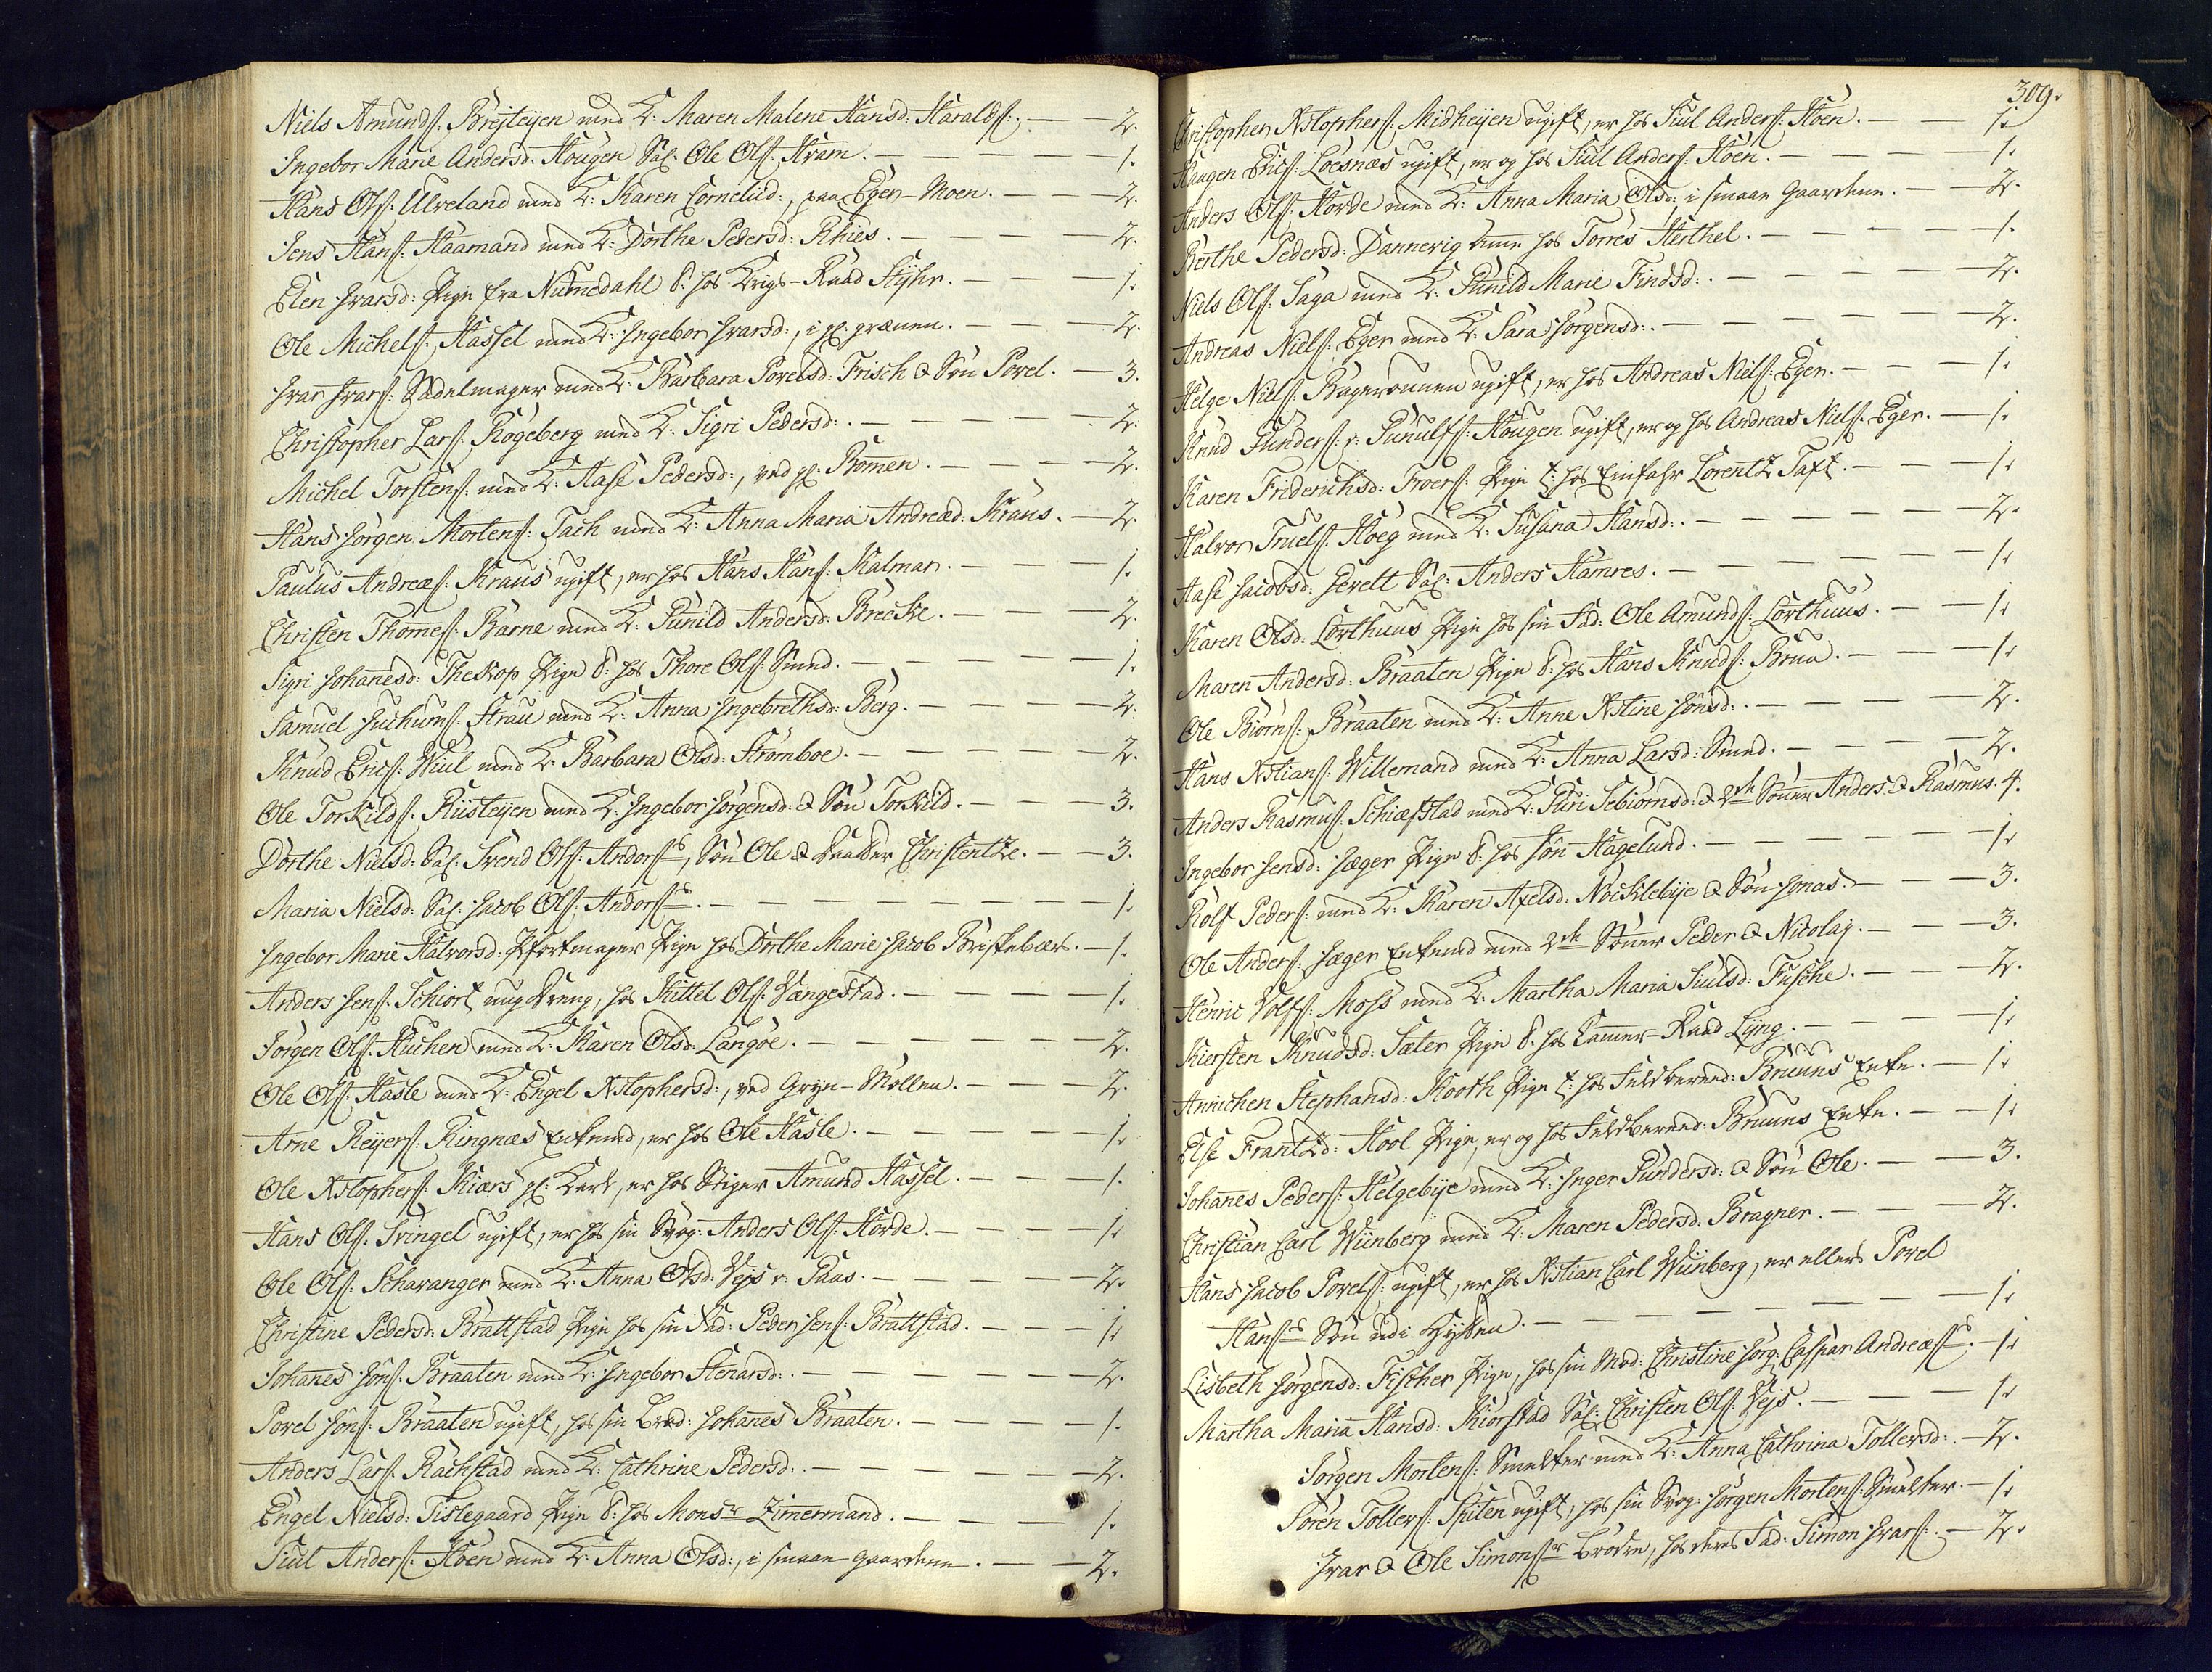 Niels Amunds: Brejteijen med K: Maren Malene Hansd: Haralds: — 2.
Ingebor Marie Andersd: Hougen Sal: Ole Ols: Hvam. — 1.
Hans Ols: Ulveland med K: Karen Cornelid:, paa Eger-Moen. — 2.
Jens Hans: Haamand med K: Dorthe Pedersd: Rhies. — 2.
Elen Ivarsd: Pige fra Numedahl t: hos Krigs-Raad Stÿhr. — 1.
Ole Michels: Hassel med K: Ingebor Ivarsd:, i gl: — 2.
Ivar Ivars: Sadelmager med K: Barbara Povelsd: Frisch & Søn Povel. — 3.
Christopher Lars: Rogeberg med K: Sigri Pedersd: — 2.
Michel Torstens: med K: Aase Pedersd:, ved gl: Bommen. — 2.
Hans Jørgen Mortens: Tach med K: Anna Maria Andread: Kraus. — 2.
Paulus Andreæs: Kraus ugift, er hos Hans Hans: Kalmar. — 1.
Christen Thomes: Barne med K: Gunild Andersd: Brecke. — 2.
Sigri Johanesd: Theskop Pige t: hos Thore Ols: Smed. — 1.
Samuel Juthums: Strau med K: Anna Ingebrethsd: Berg. — 2.
Knud Erics: Wiul med K: Barbara Olsd: Strømboe. — 2.
Ole Torkilds: Rusteijen med K: Ingebor Jørgensd: & Søn Torkild. — 3.
Dorthe Nielsd: Sal: Svend Ols: Andorss, Søn Ole & Daatter Christentze. — 3.
Maria Nielsd: Sal: Jacob Ols: Andorss. — 1.
Ingebor Marie Halvorsd: Pige hos Dorthe Marie Jacob — 1.
Anders Jens: Schiort ung Dreng, hos Kittel Ols: Vangestad. — 1.
Jørgen Ols: Huchen med K: Karen Olsd: Langøe. — 2.
Ole Ols: Hasle med K: Engel Xstophersd:, ved Gryn-Møllen. — 2.
Arne Reijers: Ringnæs Enkemd, er hos Ole Hasle. — 1.
Ole Xstophers: Kiærs gl: Karl, er hos Stiger Amund Hassel. — 1.
Hans Ols: Svingel ugift, er hos sin Svog: Anders Ols: Horde. — 1.
Ole Ols: Schavanger med K: Anna Olsd: Vejs v: Paus. — 2.
Christine Pedersd: Brattstad Pige hos sin Fad: Peder Jens: Brattstad. — 1.
Johanes Jøns: Braaten med K: Ingebor Stenarsd: — 2.
Povel Jøns: Braaten ugift, hos sin Brod: Johanes Braaten. — 1.
Anders Lars: Rachstad med K: Cathrine Pedersd: — 2.
Engel Nielsd: Tislegaard Pige t: hos Monsr Zimermand. — 1.
Siul Anders: Hoen med K: Anna Olsd:, i smaae Gaardene. — 2.
309.
Christopher Xstophers: Midheijen ugift, er hos Siul Anders: Hoen. — 1.
Haagen Erics: Loesnæs ugift, er og hos Siul Anders: Hoen. — 1.
Anders Ols: Horde med K: Anna Maria Olsd: i smaae Gaardene. — 2.
Berthe Pedersd: Dannevig hos Torres Herthel. — 1.
Niels Ols: Saga med K: Gunild Marie Findsd: — 2.
Andreas Niels: Eger med K: Sara Jørgensd: — 2.
Helge Niels: Bagerounen ugift, er hos Andreas Niels: Eger. — 1.
Knud Gunders: v: Gunulfs: Hougen ugift, er og hos Andreas Niels: Eger. — 1.
Karen Friderichsd: Troers: Pige t: hos Einfahr Lorentz Taft. — 1.
Halvor Truels: Høeg med K: Susana Hansd: — 2.
Aase Jacobsd: Jevelt Sal: Anders Hamres. — 1.
Karen Olsd: Lorthuus Pige hos sin Fad: Ole Amunds: Lorthuus. — 1.
Maren Andersd: Braaten Pige t: hos Hans Knuds: Brua. — 1.
Ole Biørns: Braaten med K: Anne Xstine Jønsd: — 2.
Hans Xstians: Willemand med K: Anna Larsd: Smed. — 2.
Anders Rasmus: Schiæfstad med K: Guri Sebiørnsd: & 2de Sønner Anders & Rasmus. 4.
Ingebor Jensd: Jæger Pige t: hos Jøn Hagelund. — 1.
Rolf Peders: med K: Karen Axelsd: Nocklebye & Søn Jonas. — 3.
Ole Anders: Jæger Enkemd med 2de Sønner Peder & Nicolaj. — 3.
Henric Volfs: Moss med K: Martha Maria Siulsd: Fusche. — 2.
Kiersten Knudsd: Sæter Pige t: hos Kammer-Raad Lyng. — 1.
Annichen Stephansd: Kooth Pige t: hos Bruuns Enke. — 1.
Else Frantzd: Hool Pige, er og hos Bruuns Enke. — 1.
Johanes Peders: Helgebye med K: Inger Gundersd: & Søn Ole. — 3.
Christian Carl Wünberg med K: Maren Pedersd: Bragner. — 2.
Hans Jacob Povels: ugift, er hos Xstian Carl Wünberg, er ellers Povel
Hanss Søn udi Hytten. — 1.
Lisbeth Jørgensd: Fischer Pige, hos sin Mod: Christine Jørg: Caspar Andreæss. — 1.
Martha Maria Hansd: Kiorstad Sal: Christen Ols: Vejs. — 1.
Jørgen Mortens: Smelter med K: Anna Cathrina Tollersd: — 2.
Søren Tollers: Spiten ugift, hos sin Svog: Jørgen Mortens: Smelter. — 1.
Ivar & Ole Simonssr Brødre, hos deres Fad: Simon Ivars: — 2.